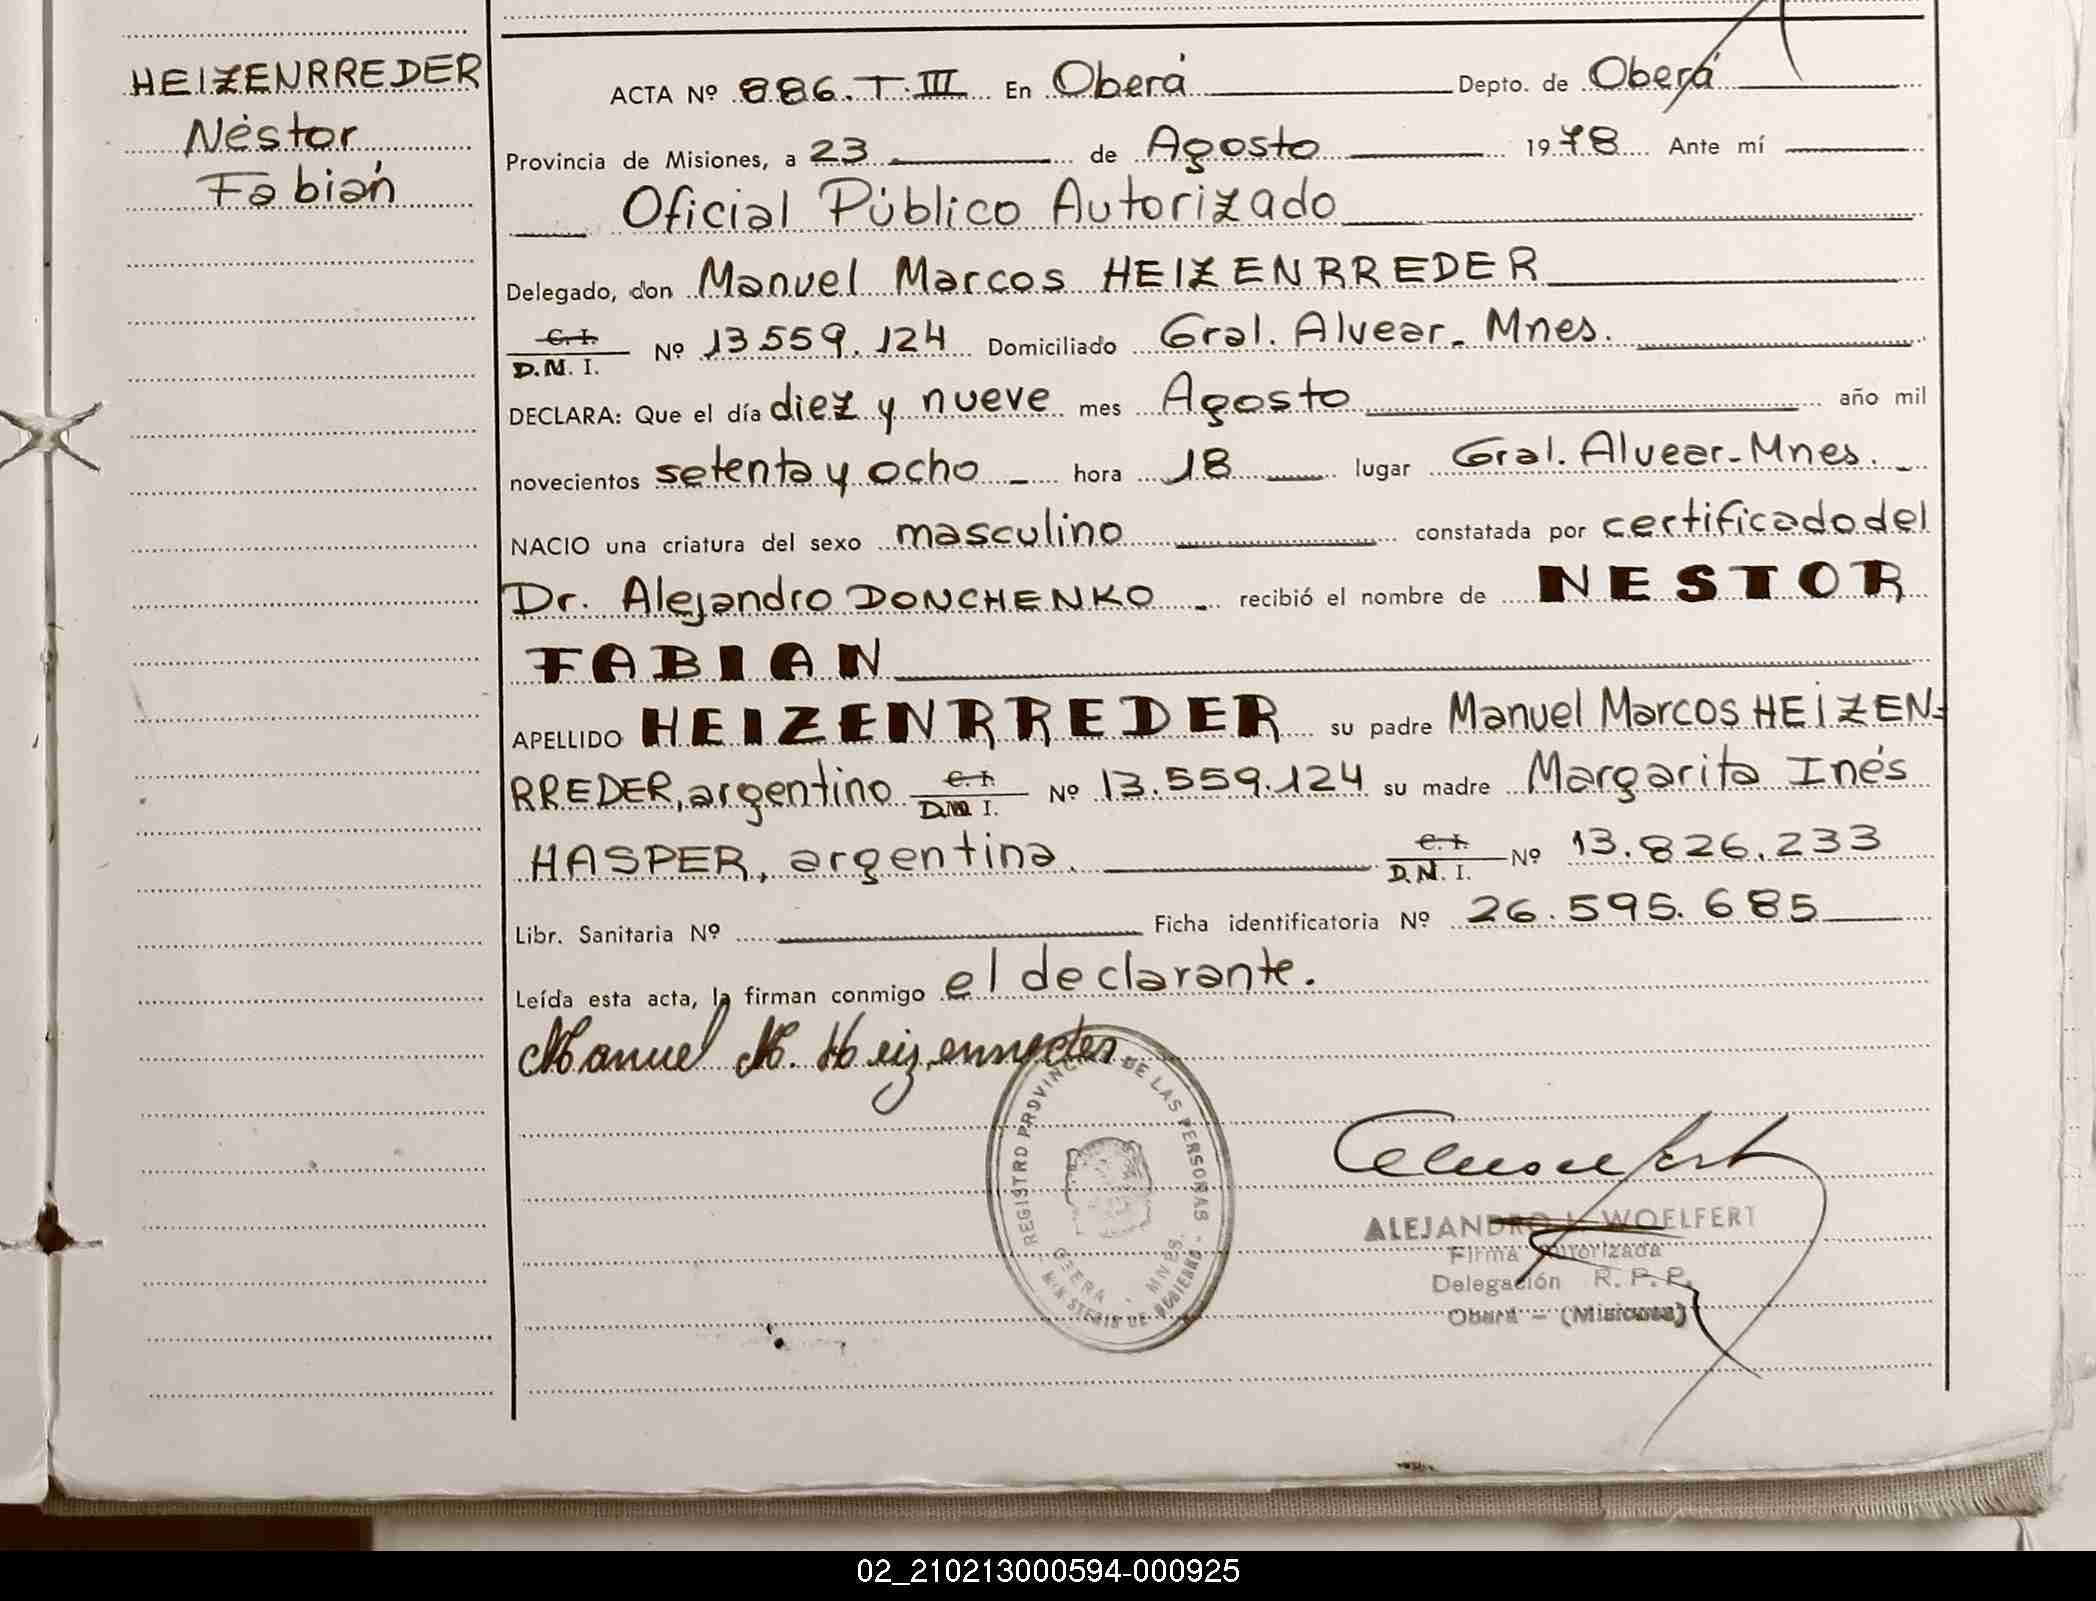 HEIZENRREDER
Néstor
Fabián
ACTA Nº 886.T.III En Oberá Depto. de Oberá
Provincia de Misiones, a 23 de Agosto 1978 Ante mí
Oficial Público Autorizado
Delegado, don Manuel Marcos HEIZENRREDER
C. I.
D.N. I. Nº 13.559.124 Domiciliado Gral. Alvear_ Mnes.
DECLARA: Que el día diez y nueve mes Agosto año mil
novecientos setenta y ocho _ hora 18 lugar Gral. Alvear-Mnes. _
NACIO una criatura del sexo masculino constatada por certificado del
Dr. Alejandro DONCHENKO _ recibió el nombre de NESTOR
FABIAN
APELLIDO HEIZENRREDER su padre Manuel Marcos HEIZEN=
RREDER, argentino C. I. D.N. I. Nº 13.559.124 su madre Margarita Inés
HASPER, argentina. C. I. D.N. I. Nº 13.826.233
Libr. Sanitaria Nº Ficha identificatoria Nº 26.595.685
Leída esta acta, la firman conmigo el declarante.
Manuel M. Heizenrreder
REGISTRO PROVINCIAL DE LAS PERSONAS
OBERA - MNES.
- MINISTERIO DE GOBIERNO -
ALEJANDRO L. WOELFERT
Firma Autorizada
Delegación R. P. P.
Oberá - (Misiones)
02_210213000594-000925